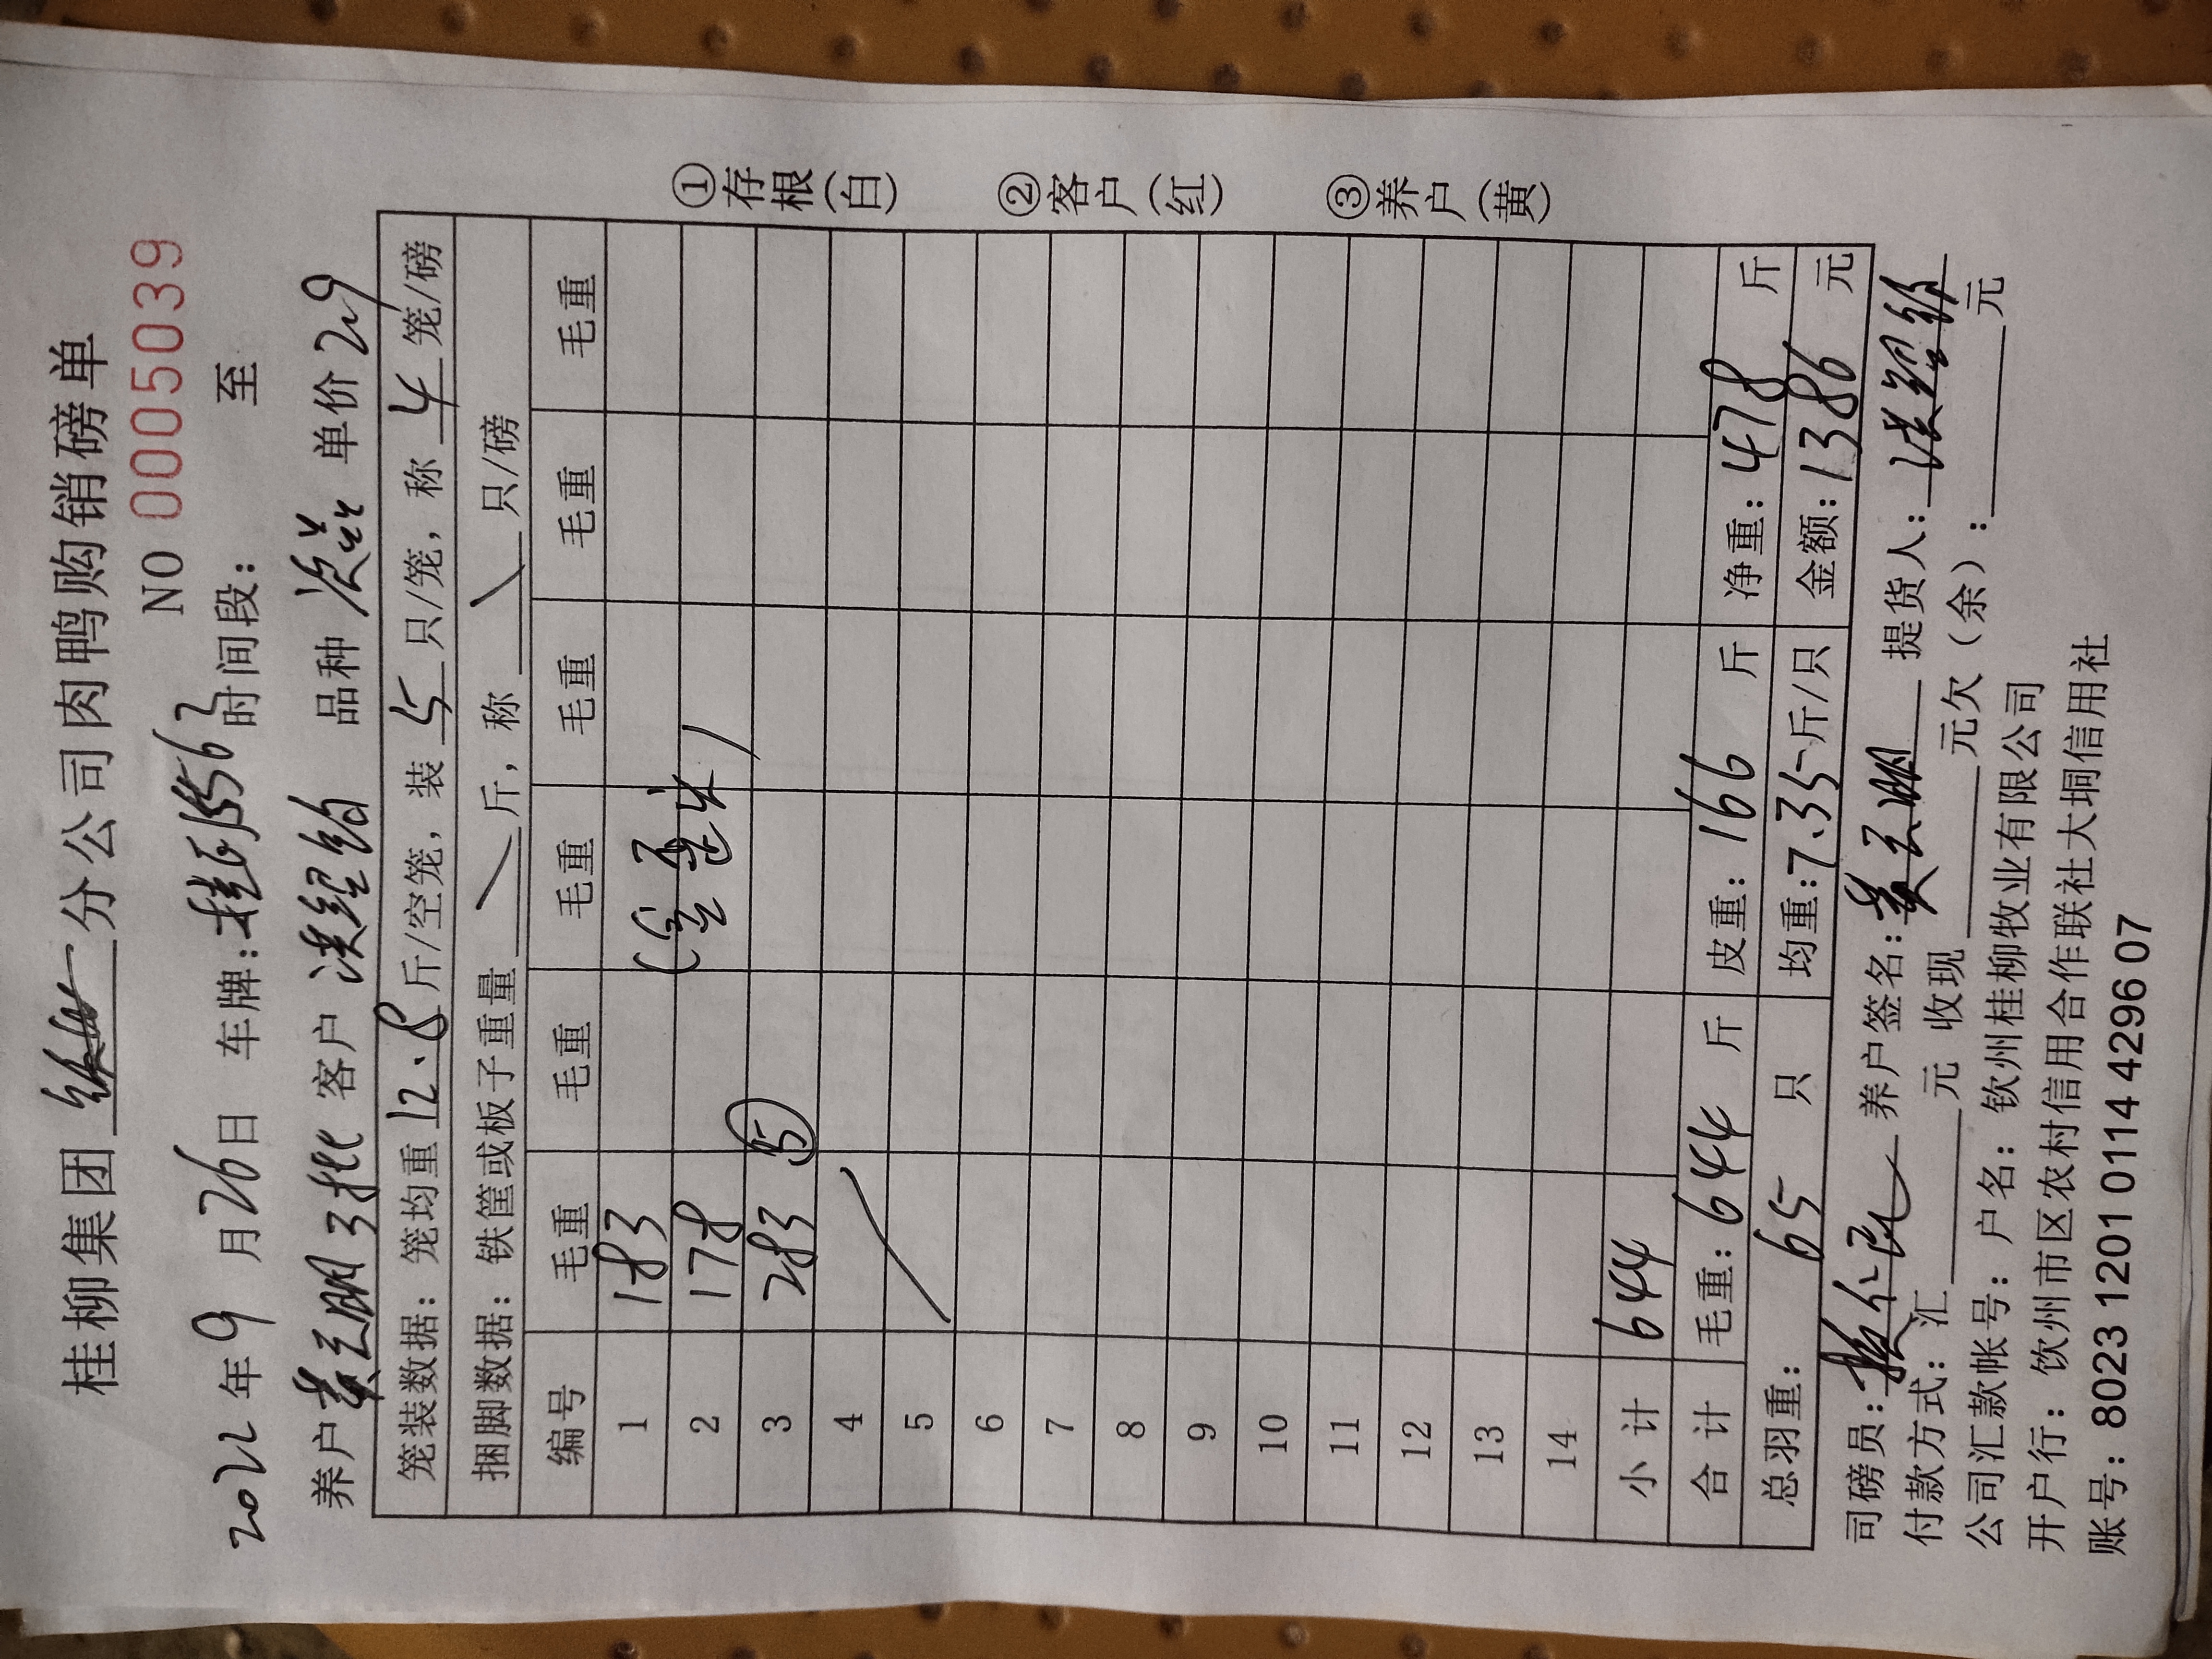 桂柳集团 分公司肉鸭购销磅单
NO 0005039
2022年9月26日 车牌: 时间段: 至
养户 3批 客户 品种 次品 单价 2.9
笼装数据: 笼均重 12.8 斤/空笼, 装 5 只/笼, 称 4 笼/磅
捆脚数据: 铁筐或板子重量 斤, 称 只/磅
编号 毛重 毛重 毛重 毛重 毛重 毛重
1 183
2 178
3 283 (5)
4
5
6
7
8
9
10
11
12
13
14
小计 644
合计 毛重: 644 斤 皮重: 166 斤 净重: 478 斤
总羽重: 65 只 均重: 7.35 斤/只 金额: 1386 元
司磅员: 养户签名: 提货人:
付款方式: 汇 元 收现 元欠(余): 元
公司汇款帐号: 户名: 钦州桂柳牧业有限公司
开户行: 钦州市区农村信用合作联社大垌信用社
账号: 8023 1201 0114 4296 07
①存根(白)
②客户(红)
③养户(黄)